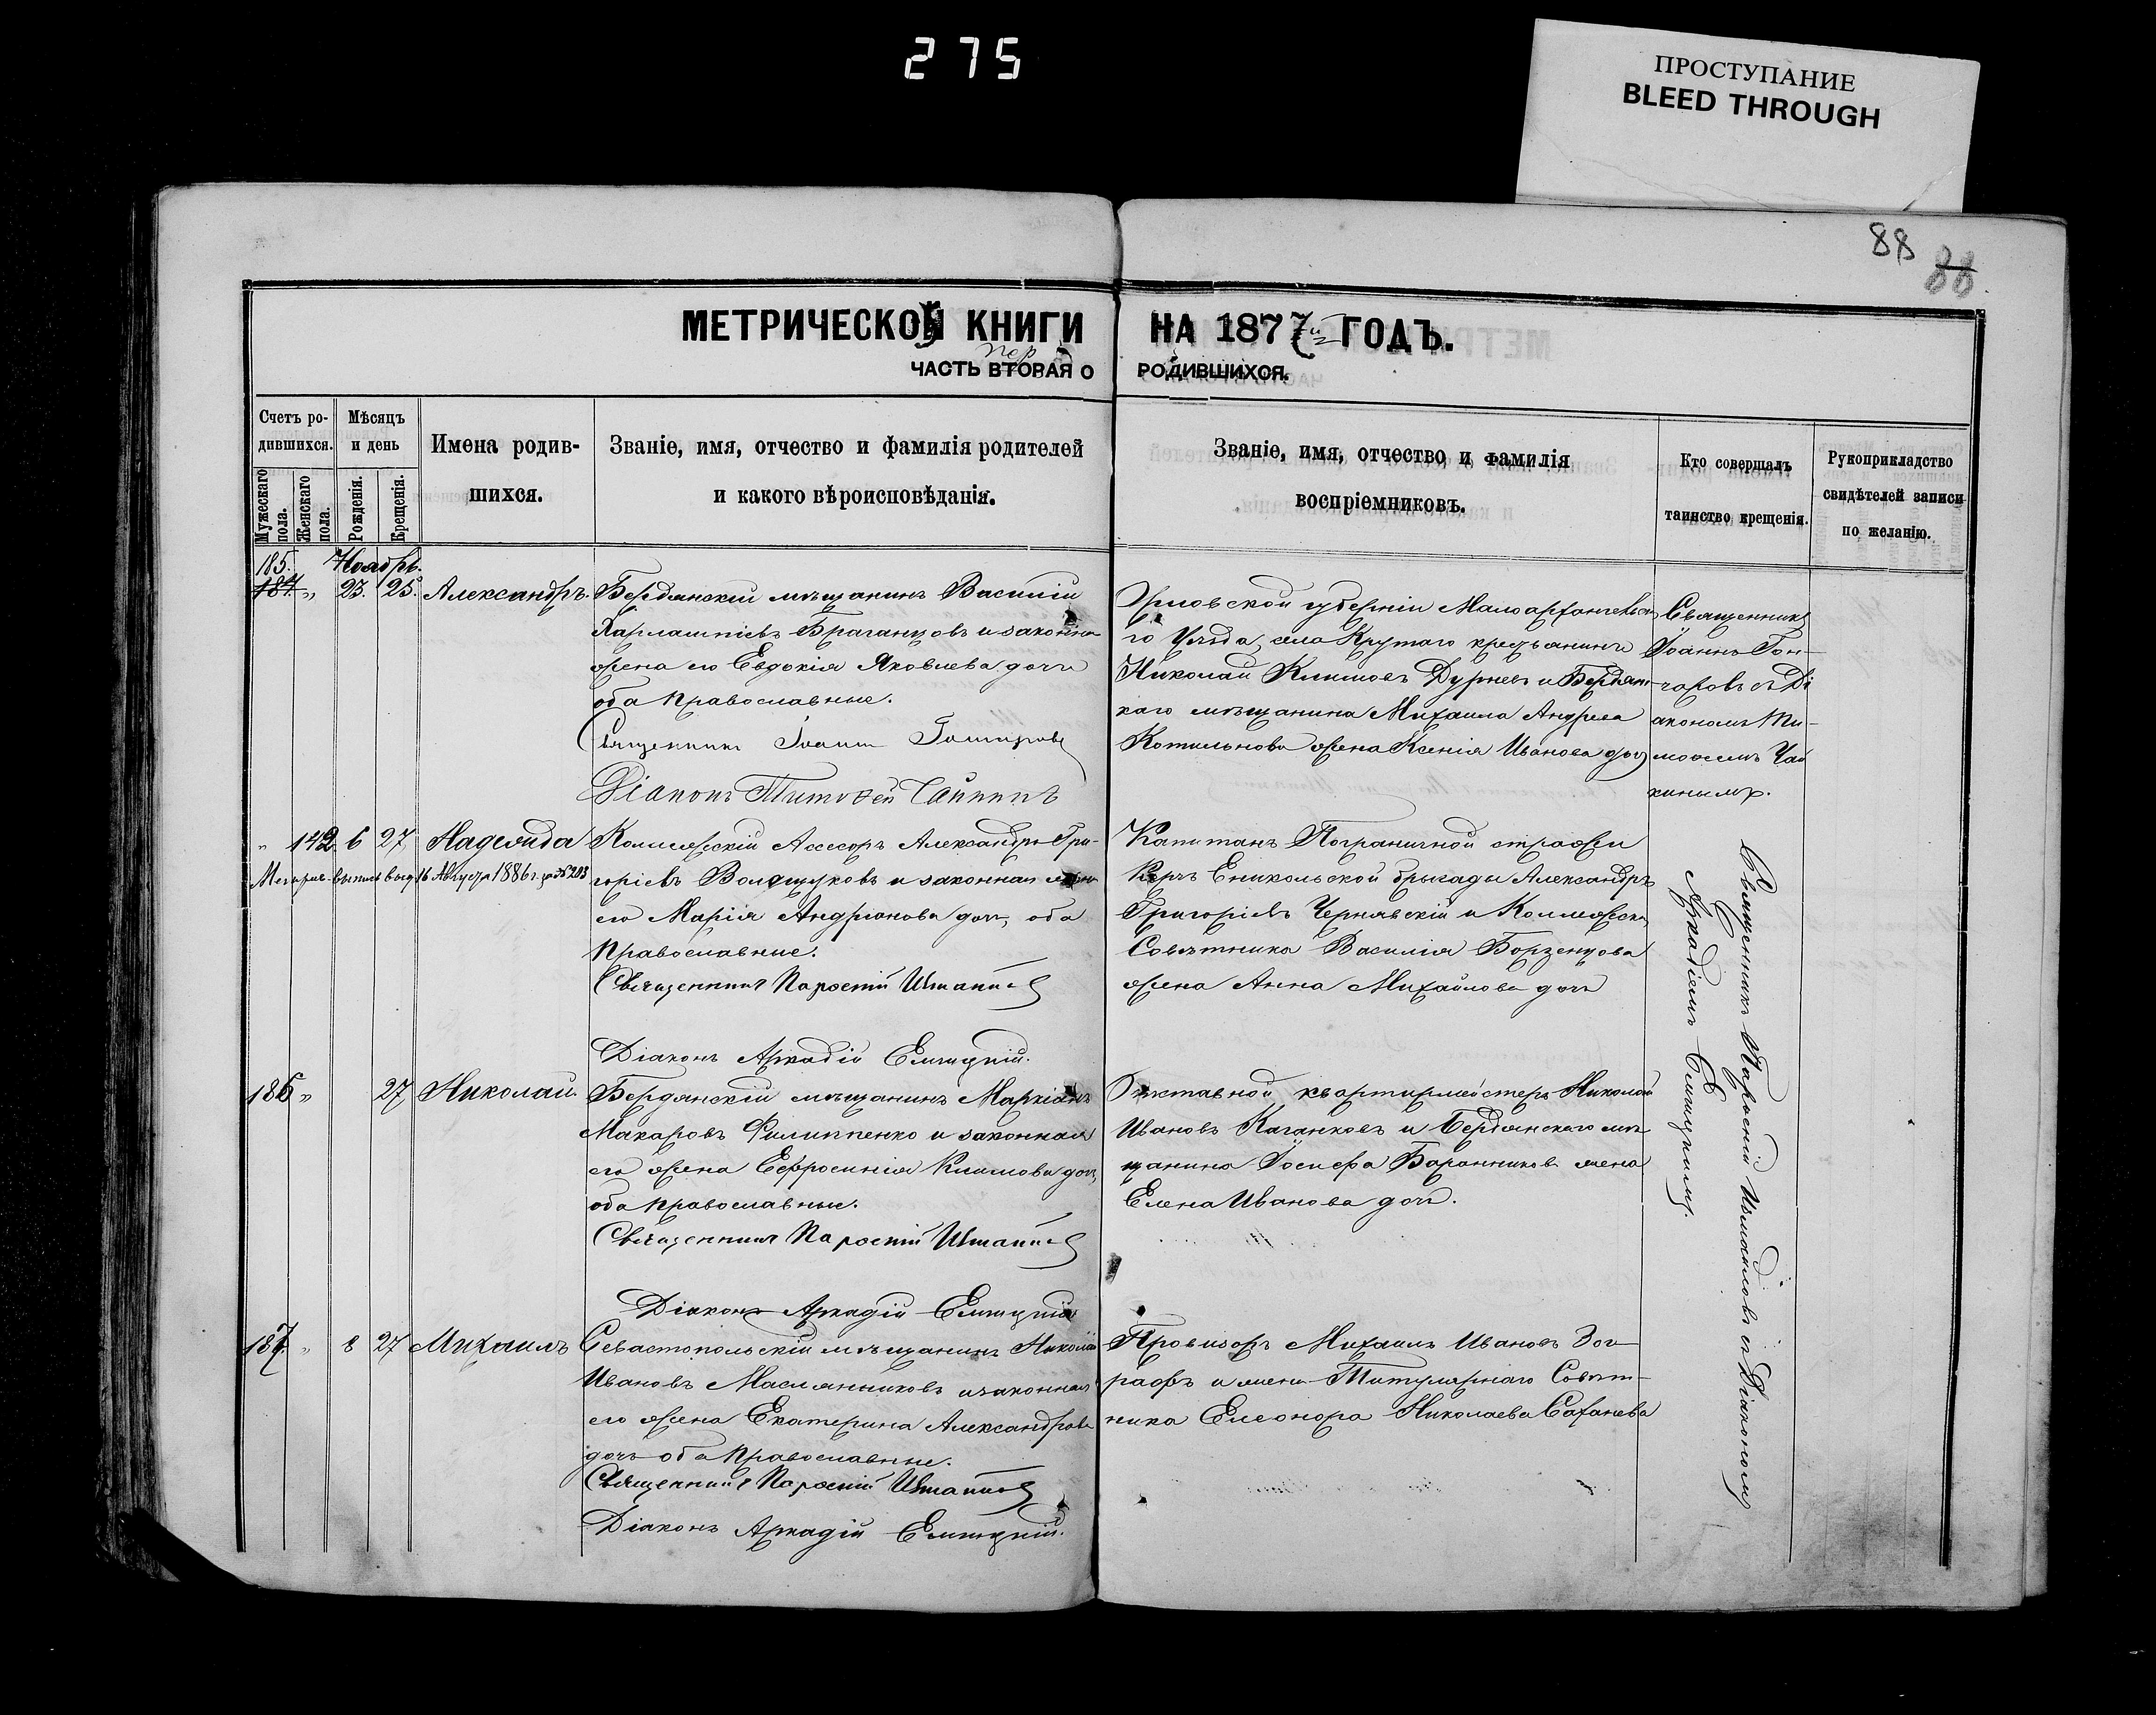 275
ПРОСТУПАНИЕ
BLEED THROUGH
88 88
МЕТРИЧЕСКОЙ КНИГИ НА 1877й ГОДЪ.
пер
ЧАСТЬ ВТОРАЯ О РОДИВШИХСЯ.
Счетъ ро-
дившихся.
Мужескаго пола.
Женскаго пола.
Мѣсяцъ
и день
Рожденія.
Крещенія.
Имена родив-
шихся.
Званіе, имя, отчество и фамилія родителей
и какого вѣроисповѣданія.
Званіе, имя, отчество и фамилія
воспріемниковъ.
Кто совершалъ
таинство крещенія.
Рукоприкладство
свидѣтелей записи
по желанію.
185. Ноябрь.
187. " 23. 25. Александръ.
Бердянскій мѣщанинъ Василій
Харлампіевъ Браганцовъ и законная
жена его Евдокія Яковлева дочь
оба православные.
Священникъ Іоаннъ Гончаровъ
Діаконъ Тимофей Чайкинъ
Орловской губерніи Малоархангельска
го Уѣзда, села Крутаго крестьянинъ
Николай Климовъ Дурневъ и Бердянс
каго мѣщанина Михаила Андреева
Котельнова жена Ксенія Иванова дочь
Священникъ
Іоаннъ Гон-
чаровъ съ Ді
акономъ Ти-
моѳеемъ Чай
кинымъ.
" 142. 6 27 Надежда
Метрич. выпись выд. 16 Августа 1886 г. за № 203
Коллежскій Ассесоръ Александръ Гри-
горіевъ и законная жена
его Марія Андріанова дочь, оба
православные.
Священникъ Измаиловъ
Діаконъ Аркадій Елищкій.
Капитанъ Пограничной стражи
Керчь Еникольской бригады Александръ
Григоріевъ Чернявскій и Коллежскаго
Совѣтника Василія Борзенцова
жена Анна Михайлова дочь
186 " 27 Николай.
Бердянскій мѣщанинъ Маркіанъ
Макаровъ Филиппенко и законная
его жена Евфросинія Климова дочь,
оба православные.
Священникъ Измаиловъ
Діаконъ Аркадій
Отставной квартирмейстеръ Николай
Ивановъ Каганковъ и Бердянскаго мѣ
щанина Іосифа Баранникова жена
Елена Иванова дочь.
187. " 8 27 Михаилъ
Севастопольскій мѣщанинъ Николай
Ивановъ Масляниковъ и законная
его жена Екатерина Александрова
дочь оба православные.
Священникъ Измаиловъ
Діаконъ Аркадій
Провизоръ Михаилъ Ивановъ Зог
рафъ и жена Титулярнаго Совѣт-
ника Елеонора Николаева Сафанева
Священникъ Измаиловъ съ Діакономъ
Аркадіемъ